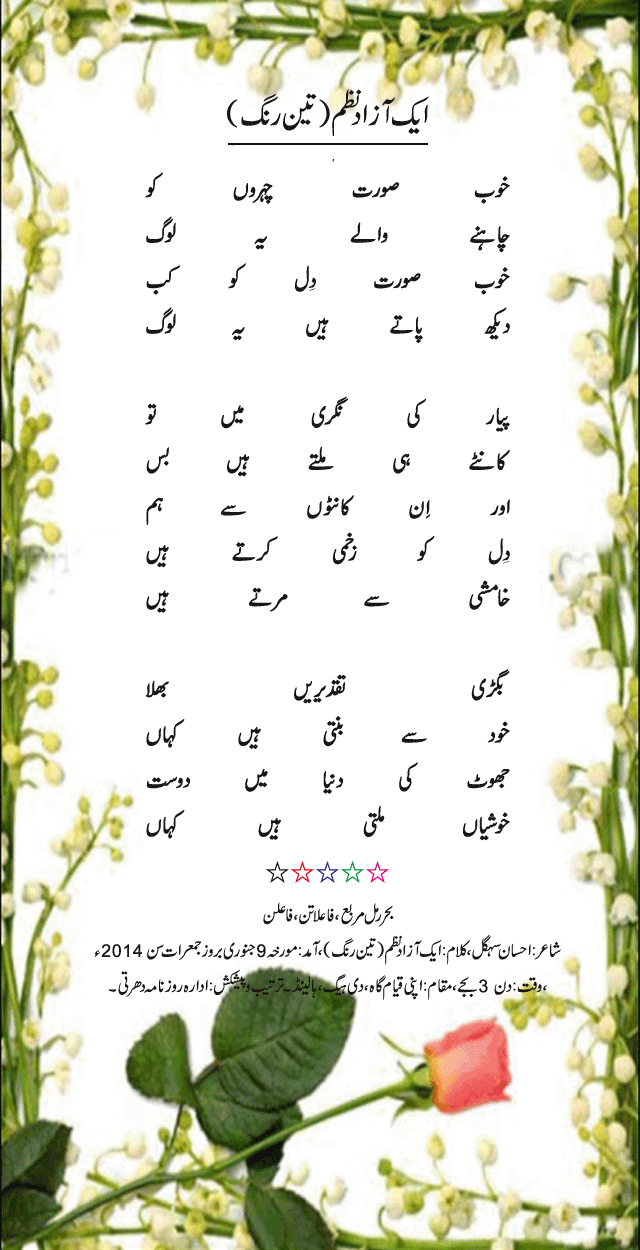 ایک آزاد نظم (تین رنگ)
خوب صورت چہروں کو
چاہنے والے یہ لوگ
خوب صورت دِل کو کب
دیکھ پاتے ہیں یہ لوگ
پیار کی نگری میں تو
کانٹے ہی ملتے ہیں بس
اور اِن کانٹوں سے ہم
دِل کو زخمی کرتے ہیں
خامشی سے مرتے ہیں
بگڑی تقدیریں بھلا
خود سے بنتی ہیں کہاں
جھوٹ کی دنیا میں دوست
خوشیاں ملتی ہیں کہاں
بحر رمل مربع، فاعلاتن، فاعلن
شاعر: احسان سہگل، کلام: ایک آزاد نظم (تین رنگ)، آمد: مورخہ 9 جنوری بروز جمعرات سن 2014ء
،وقت: دن 3 بجے، مقام: اپنی قیام گاہ، دی ہیگ، ہالینڈ۔ ترتیب و پیشکش: ادارہ روزنامہ دھرتی۔